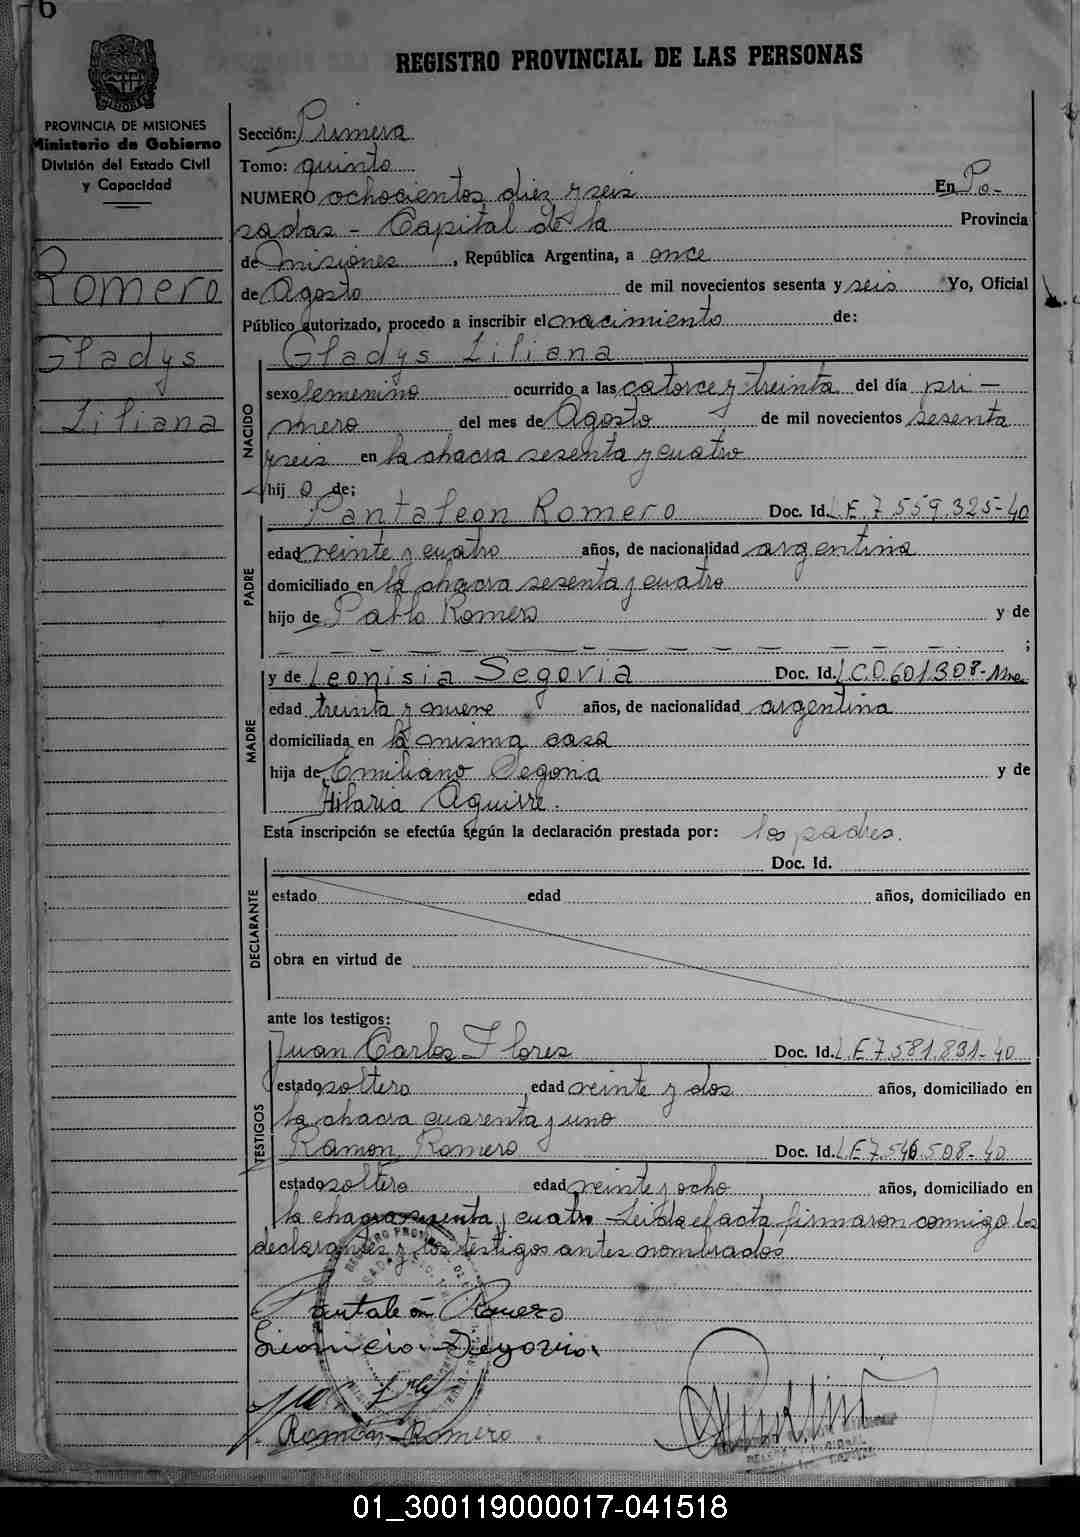 6
REGISTRO PROVINCIAL DE LAS PERSONAS
PROVINCIA DE MISIONES
Ministerio de Gobierno
División del Estado Civil
y Capacidad
Romero
Gladys
Liliana
Sección: Primera
Tomo: quinto
NUMERO ochocientos diez y seis En Po-
sadas - Capital de la Provincia
de Misiones, República Argentina, a once
de Agosto de mil novecientos sesenta y seis Yo, Oficial
Público autorizado, procedo a inscribir el nacimiento de:
Gladys Liliana
NACIDO
sexo femenino ocurrido a las catorce y treinta del día pri-
mero del mes de Agosto de mil novecientos sesenta
y seis en la chacra sesenta y cuatro
hij a de;
Pantaleon Romero Doc. Id. L.E. 7.559.325-40
PADRE
edad veinte y cuatro años, de nacionalidad argentina
domiciliado en la chacra sesenta y cuatro
hijo de Pablo Romero y de
— — — — — — — — — — — — ;
MADRE
y de Leonisia Segovia Doc. Id. L.C.0.601.308-Mnes
edad treinta y nueve años, de nacionalidad argentina
domiciliada en la misma casa
hija de Emiliano Segovia y de
Hilaria Aguirre.
Esta inscripción se efectúa según la declaración prestada por: los padres.
DECLARANTE
Doc. Id.
estado edad años, domiciliado en
obra en virtud de
ante los testigos:
TESTIGOS
Juan Carlos Flores Doc. Id. L.E 7.581.831-40
estado soltero edad veinte y dos años, domiciliado en
la chacra cuarenta y uno
Ramon Romero Doc. Id. L.E 7.546.508-40
estado soltero edad veinte y ocho años, domiciliado en
la chacra sesenta y cuatro - Leida el acta firmaron conmigo los
declarantes y los testigos antes nombrados
Pantaleón Romero
Leonicia Segovia
Ramón Romero
01_300119000017-041518